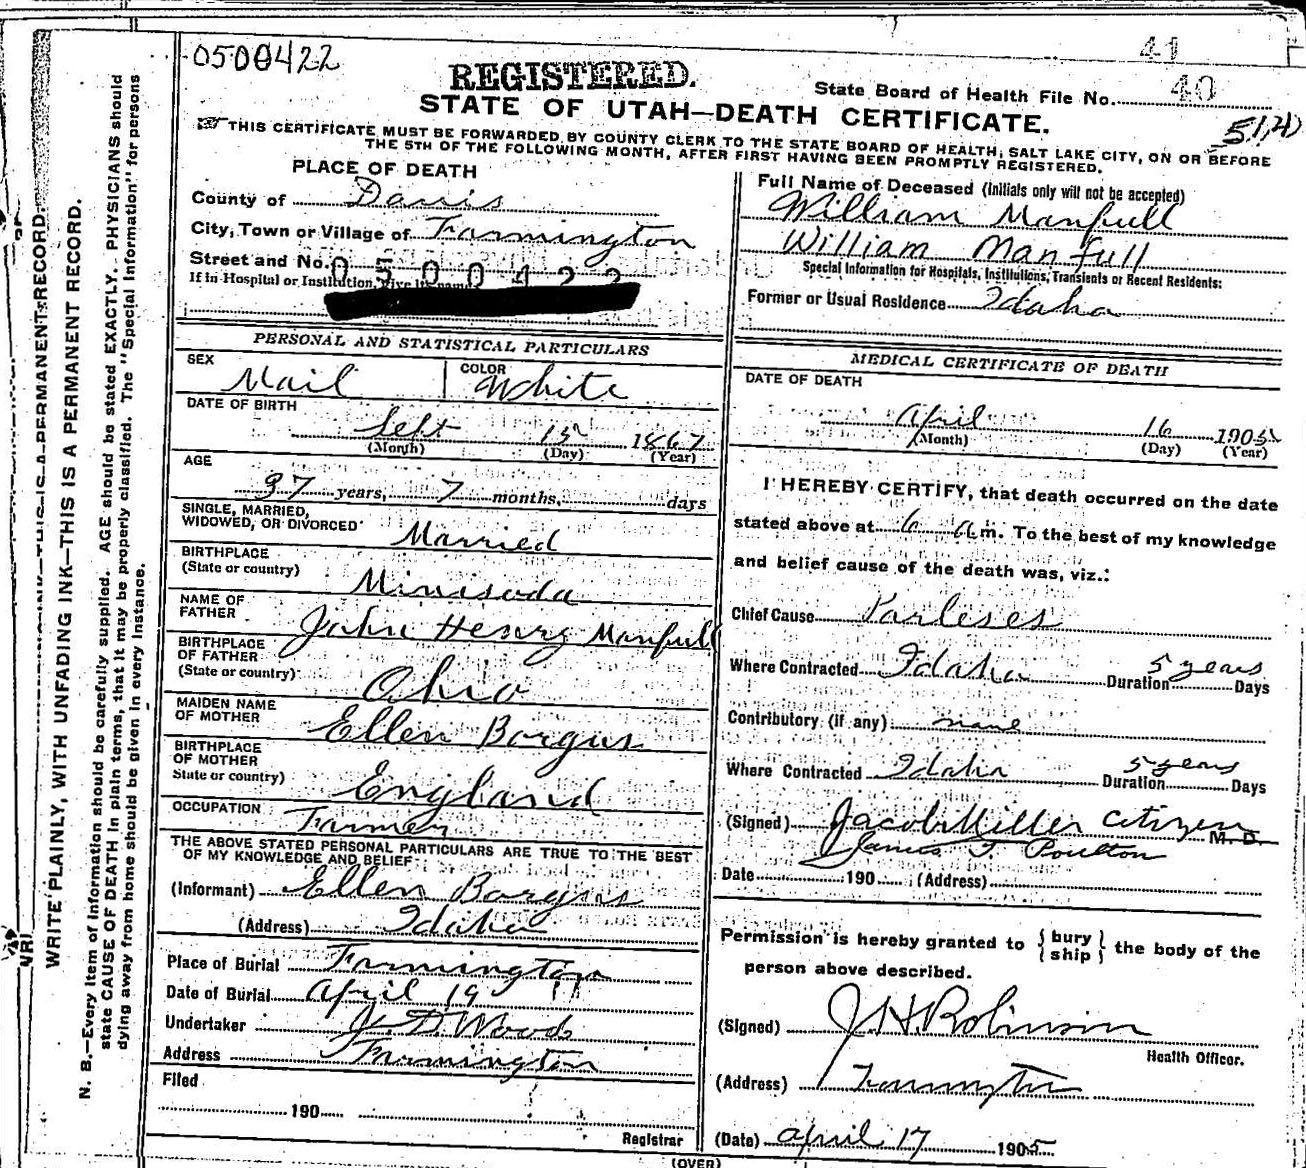 0500422
41
REGISTERED.
State Board of Health File No. 40
STATE OF UTAH—DEATH CERTIFICATE.
THIS CERTIFICATE MUST BE FORWARDED BY COUNTY CLERK TO THE STATE BOARD OF HEALTH, SALT LAKE CITY, ON OR BEFORE
THE 5TH OF THE FOLLOWING MONTH, AFTER FIRST HAVING BEEN PROMPTLY REGISTERED.
PLACE OF DEATH
County of Davis
City, Town or Village of Farmington
Street and No. 0500422
If in Hospital or Institution, give its name
Full Name of Deceased (Initials only will not be accepted)
William Manfull
William Manfull
Special Information for Hospitals, Institutions, Transients or Recent Residents:
Former or Usual Residence Idaho
PERSONAL AND STATISTICAL PARTICULARS
SEX Mail
COLOR White
DATE OF BIRTH
Sept 15 1867
(Month) (Day) (Year)
AGE
37 years, 7 months, days
SINGLE, MARRIED,
WIDOWED, OR DIVORCED Married
BIRTHPLACE
(State or country) Minisoda
NAME OF
FATHER John Henry Manfull
BIRTHPLACE
OF FATHER
(State or country) Ohio
MAIDEN NAME
OF MOTHER Ellen Borgus
BIRTHPLACE
OF MOTHER
State or country) England
OCCUPATION
Farmer
THE ABOVE STATED PERSONAL PARTICULARS ARE TRUE TO THE BEST
OF MY KNOWLEDGE AND BELIEF
(Informant) Ellen Borgus
(Address) Idaho
Place of Burial Farmington
Date of Burial April 19
Undertaker J. D. Wood
Address Farmington
Filed
190
Registrar
MEDICAL CERTIFICATE OF DEATH
DATE OF DEATH
April 16 1905
(Month) (Day) (Year)
I HEREBY CERTIFY, that death occurred on the date
stated above at 6 a.m. To the best of my knowledge
and belief cause of the death was, viz.:
Chief Cause Parleses
Where Contracted Idaho Duration 5 years Days
Contributory (if any) none
Where Contracted Idaho Duration 5 years Days
(Signed) Jacob Miller Citizen M. D.
James T. Poulton
Date 190 (Address)
Permission is hereby granted to {bury
ship} the body of the
person above described.
(Signed) J H Robinson
Health Officer.
(Address) Farmington
(Date) April 17 1905
(OVER)
WRITE PLAINLY, WITH UNFADING INK—THIS IS A PERMANENT RECORD.
N. B.—Every item of information should be carefully supplied. AGE should be stated EXACTLY. PHYSICIANS should
state CAUSE OF DEATH in plain terms, that it may be properly classified. The "Special Information" for persons
dying away from home should be given in every instance.